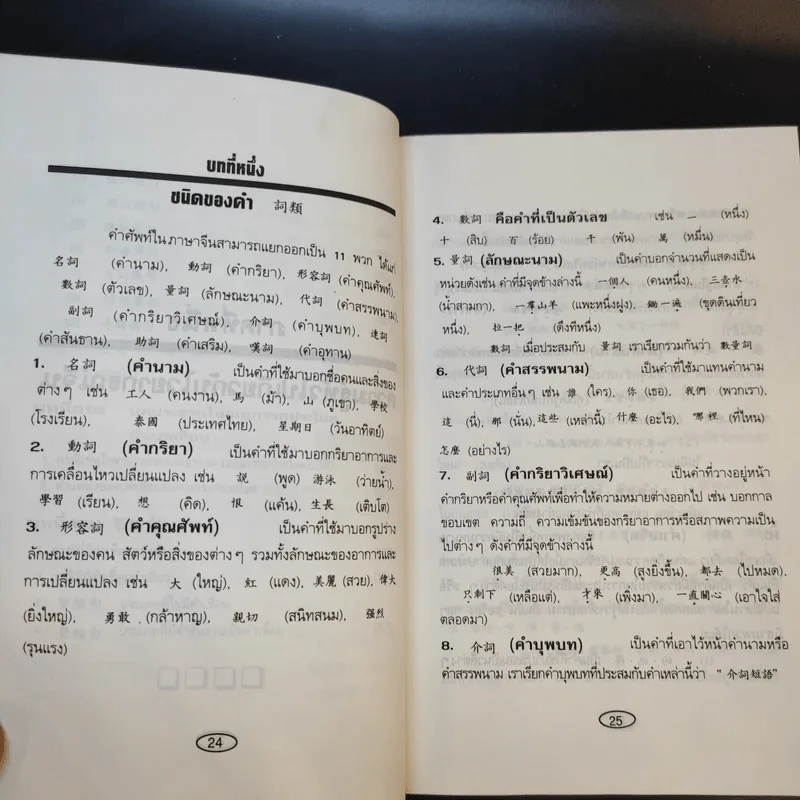 บทที่หนึ่ง
ชนิดของคำ 詞類
คำศัพท์ในภาษาจีนสามารถแยกออกเป็น 11 พวก ได้แก่
名詞 (คำนาม), 動詞 (คำกริยา), 形容詞 (คำคุณศัพท์),
數詞 (ตัวเลข), 量詞 (ลักษณะนาม), 代詞 (คำสรรพนาม),
副詞 (คำกริยาวิเศษณ์), 介詞 (คำบุพบท), 連詞
(คำสันธาน), 助詞 (คำเสริม), 嘆詞 (คำอุทาน)
1. 名詞 (คำนาม) เป็นคำที่ใช้มาบอกชื่อคนและสิ่งของ
ต่างๆ เช่น 工人 (คนงาน), 馬 (ม้า), 山 (ภูเขา), 學校
(โรงเรียน), 泰國 (ประเทศไทย), 星期日 (วันอาทิตย์)
2. 動詞 (คำกริยา) เป็นคำที่ใช้มาบอกกริยาอาการและ
การเคลื่อนไหวเปลี่ยนแปลง เช่น 說 (พูด) 游泳 (ว่ายน้ำ),
學習 (เรียน), 想 (คิด), 恨 (แค้น), 生長 (เติบโต)
3. 形容詞 (คำคุณศัพท์) เป็นคำที่ใช้มาบอกรูปร่าง
ลักษณะของคน สัตว์หรือสิ่งของต่างๆ รวมทั้งลักษณะของอาการและ
การเปลี่ยนแปลง เช่น 大 (ใหญ่), 紅 (แดง), 美麗 (สวย), 偉大
(ยิ่งใหญ่), 勇敢 (กล้าหาญ), 親切 (สนิทสนม), 強烈
(รุนแรง)
24
4. 數詞 คือคำที่เป็นตัวเลข เช่น 一 (หนึ่ง)
十 (สิบ) 百 (ร้อย) 千 (พัน) 萬 (หมื่น)
5. 量詞 (ลักษณะนาม) เป็นคำบอกจำนวนที่แสดงเป็น
หน่วยดังเช่น คำที่มีจุดข้างล่างนี้ 一個人 (คนหนึ่ง), 三壺水
(น้ำสามกา), 一羣山羊 (แพะหนึ่งฝูง), 鋤一遍 (ขุดดินเที่ยว
หนึ่ง), 拉一把 (ดึงทีหนึ่ง)
數詞 เมื่อประสมกับ 量詞 เราเรียกรวมกันว่า 數量詞
6. 代詞 (คำสรรพนาม) เป็นคำที่ใช้มาแทนคำนาม
และคำประเภทอื่นๆ เช่น 誰 (ใคร), 你 (เธอ), 我們 (พวกเรา),
這 (นี่), 那 (นั่น), 這些 (เหล่านี้) 什麼 (อะไร), 哪裡 (ที่ไหน)
怎麼 (อย่างไร)
7. 副詞 (คำกริยาวิเศษณ์) เป็นคำที่วางอยู่หน้า
คำกริยาหรือคำคุณศัพท์เพื่อทำให้ความหมายต่างออกไป เช่น บอกกาล
ขอบเขต ความถี่ ความเข้มข้นของกริยาอาการหรือสภาพความเป็น
ไปต่างๆ ดังคำที่มีจุดข้างล่างนี้
很美 (สวยมาก), 更高 (สูงยิ่งขึ้น), 都去 (ไปหมด),
只剩下 (เหลือแต่), 才來 (เพิ่งมา), 一直關心 (เอาใจใส่
ตลอดมา)
8. 介詞 (คำบุพบท) เป็นคำที่เอาไว้หน้าคำนามหรือ
คำสรรพนาม เราเรียกคำบุพบทที่ประสมกับคำเหล่านี้ว่า "介詞短語"
25